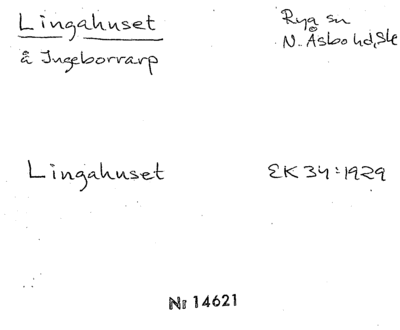 Lingahuset
å Ingeborrarp
Rya sn
N. Åsbo hd, Sk
Lingahuset
EK 34:1929
Nr 14621